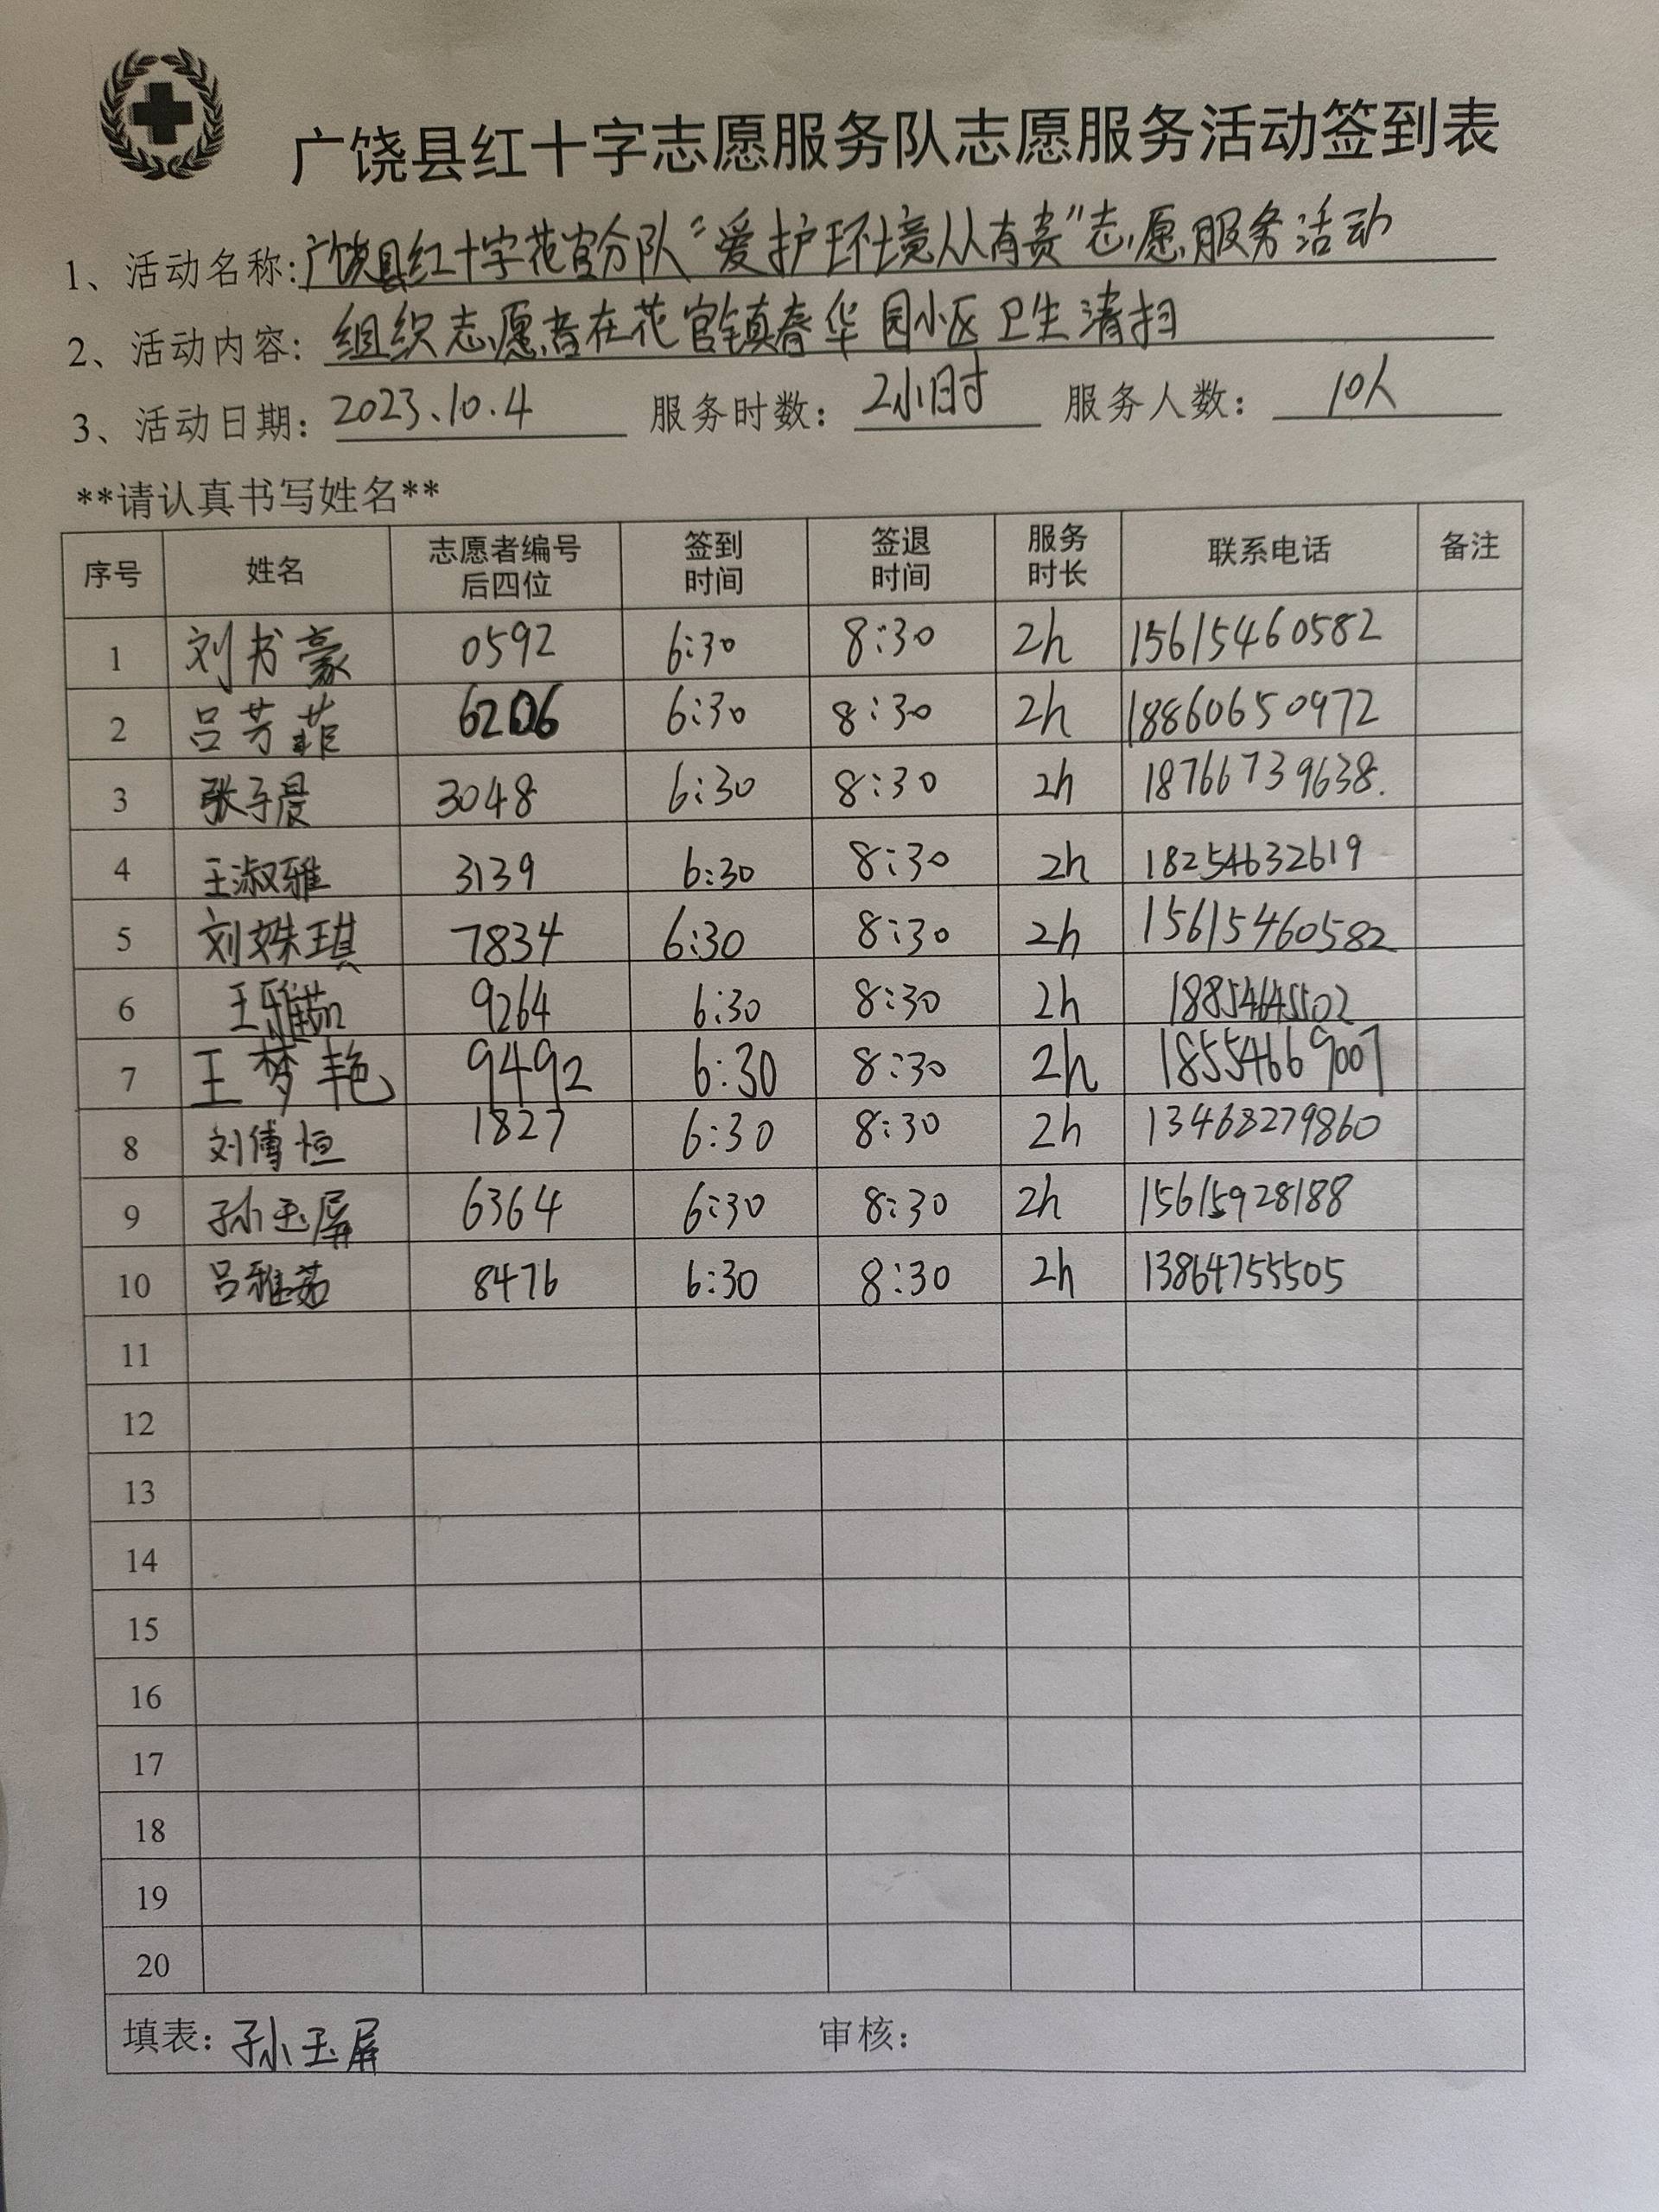 广饶县红十字志愿服务队志愿服务活动签到表
1、活动名称:广饶县红十字花官分队“爱护环境从有责”志愿服务活动
2、活动内容:组织志愿者在花官镇春华园小区卫生清扫
3、活动日期:2023.10.4 服务时数:2小时 服务人数:10人
**请认真书写姓名**
序号 姓名 志愿者编号后四位 签到时间 签退时间 服务时长 联系电话 备注
1 刘书豪 0592 6:30 8:30 2h 15615460582
2 吕芳菲 6206 6:30 8:30 2h 18860650972
3 张子晨 3048 6:30 8:30 2h 18766739638.
4 王淑雅 3139 6:30 8:30 2h 18254632619
5 刘姝琪 7834 6:30 8:30 2h 15615460582
6 王雅茹 9264 6:30 8:30 2h 18854645502
7 王梦艳 9492 6:30 8:30 2h 18554669007
8 刘傅恒 1827 6:30 8:30 2h 13468279860
9 孙玉屏 6364 6:30 8:30 2h 15615928188
10 吕雅茹 8476 6:30 8:30 2h 13864755505
11
12
13
14
15
16
17
18
19
20
填表:孙玉屏 审核: